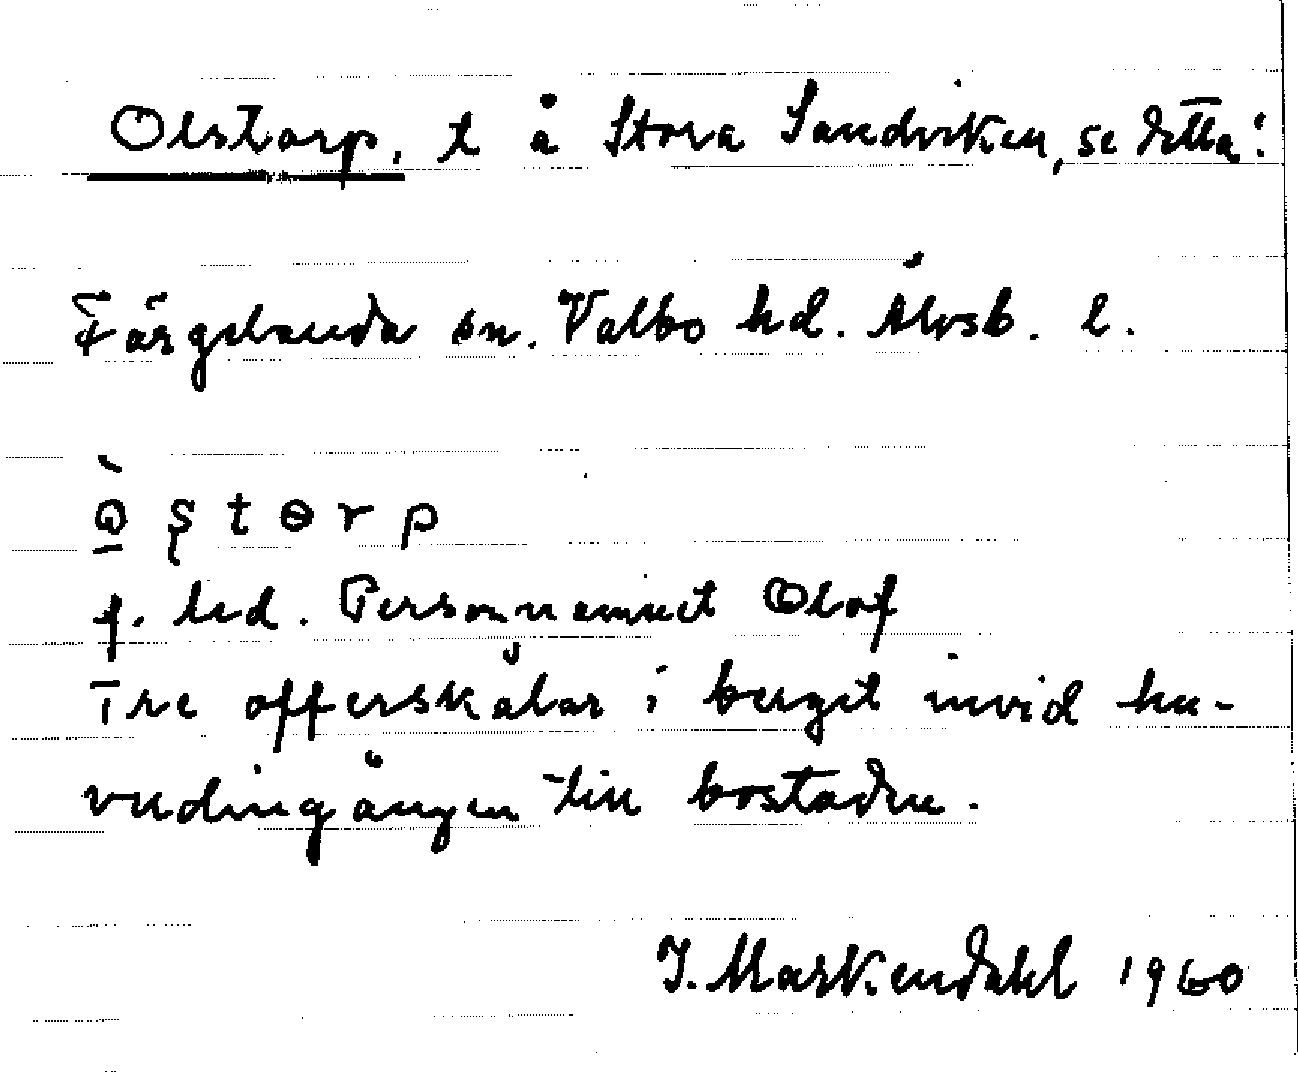 Olstorp, t å Stora Sandviken, se detta!
Färgelanda sn. Valbo hd. Älvsb. l.
ò̱ ş t ɵ r p
f. led. Personnamnet Olof
Tre offerskålar i berget invid hu-
vudingången till bostaden.
J. Markendahl 1960